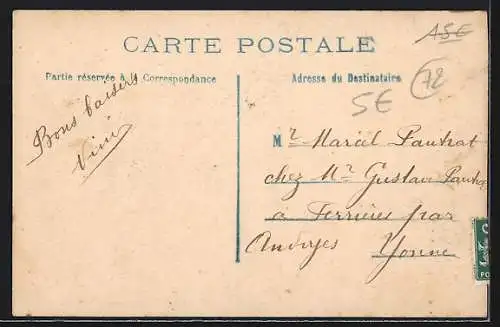 A5E
CARTE POSTALE
Partie réservée à la Correspondance
Adresse du Destinataire
72
5E
Bons baisers
Mr Marcel Pautrat
chez Mr Gustave Pautrat
à Ferrières par
Andryes Yonne
PO